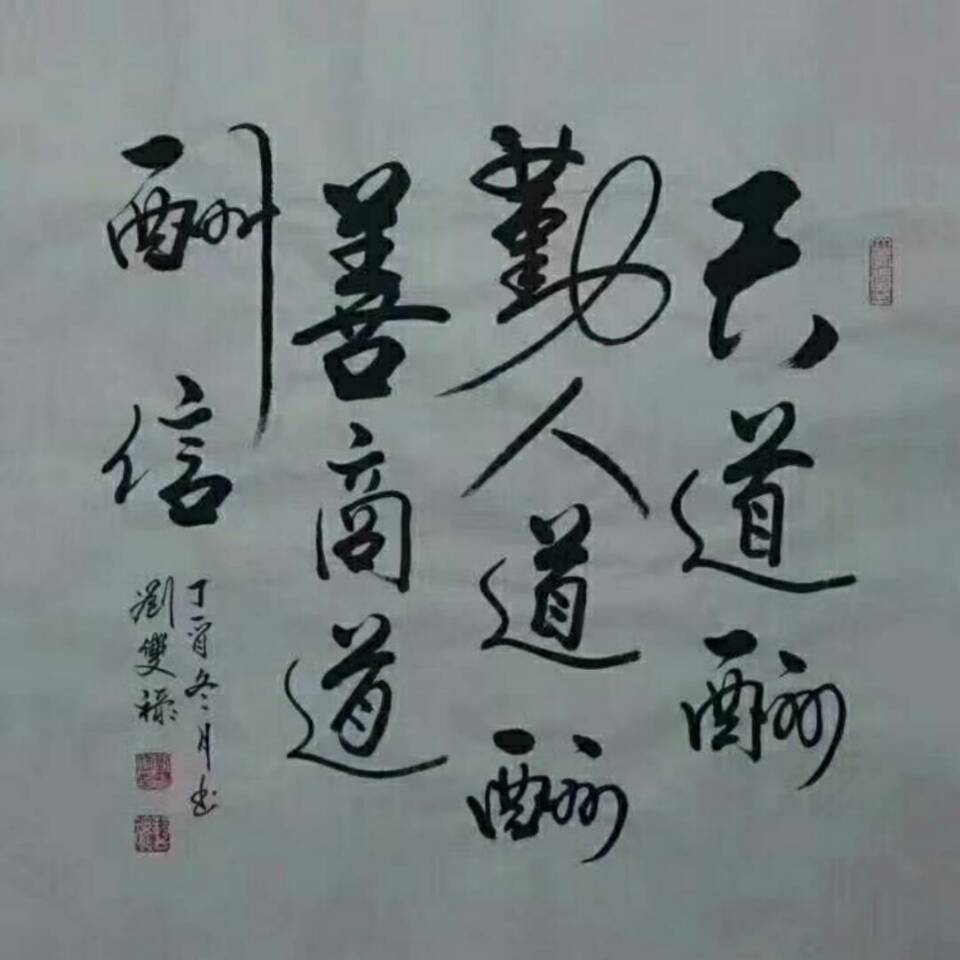 天道酬
勤人道酬
善商道
酬信
丁酉冬月书
劉雙祿